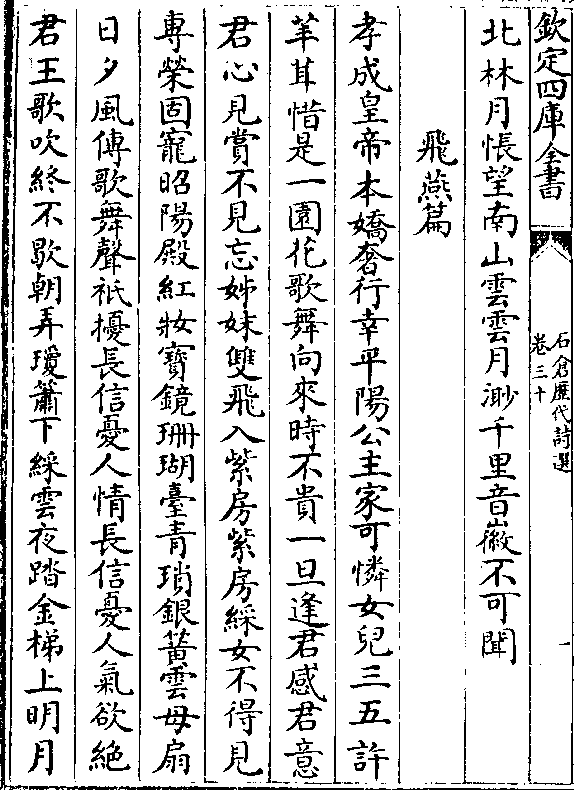 欽定四庫全書
石倉歷代詩選
卷三十
一
北林月悵望南山雲雲月渺千里音徽不可聞
飛燕篇
孝成皇帝本嬌奢行幸平陽公主家可憐女兒三五許
芉茸惜是一園花歌舞向來時不貴一旦逢君感君意
君心見賞不見忘姊妹雙飛入紫房紫房綵女不得見
専榮固寵昭陽殿紅妝寶鏡珊瑚臺青瑣銀簧雲母扇
日夕風傳歌舞聲祇擾長信憂人情長信憂人氣欲絶
君王歌吹終不歇朝弄瓊簫下綵雲夜踏金梯上明月